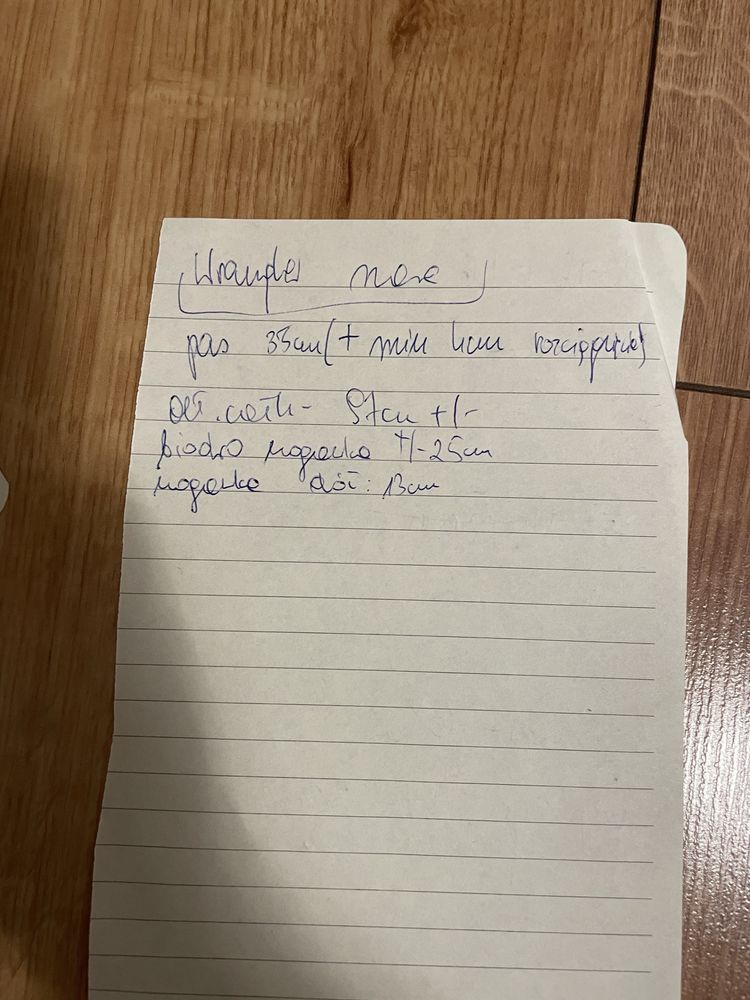 Wrangler nowe
pas 35cm (+ min 4cm rozciągnięcie)
dł. całk - 97cm +/-
biodro nogawka +/- 25cm
nogawka dół: 13cm